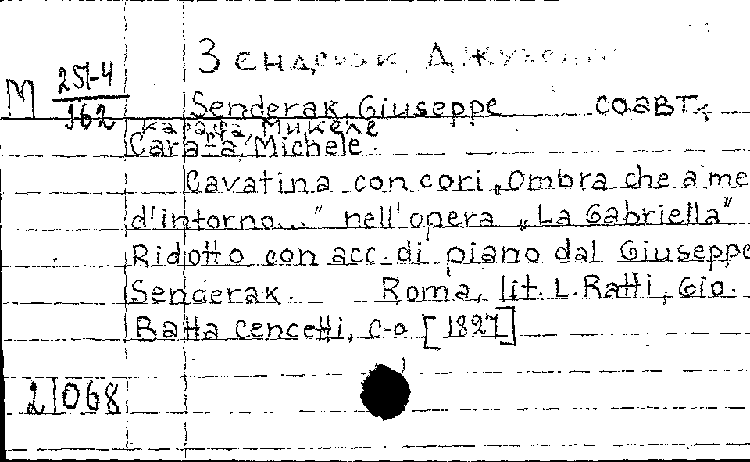 Зендерак, Джузеппе
М 251-4
162
Senderak, Giuseppe соавт.
Карафа, Микеле
Carafa, Michele.
Cavatina con cori „Ombra che a me
d'intorno..." nell'opera „La Gabriella"
Ridotto con acc. di piano dal Giuseppe
Sencerak. Roma, lit. L. Ratti, Gio.
Batta Cencetti, c-a [1827]
21068